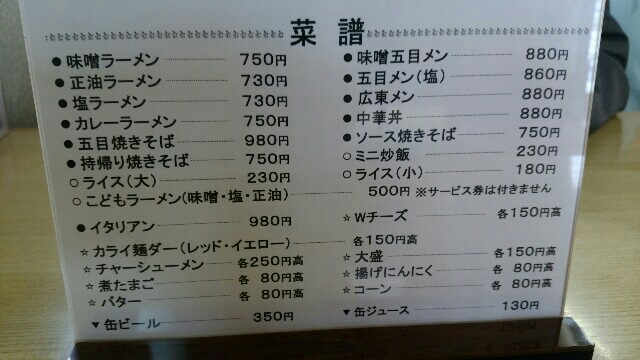 菜譜
● 味噌ラーメン 750円
● 正油ラーメン 730円
● 塩ラーメン 730円
● カレーラーメン 750円
● 五目焼きそば 980円
● 持帰り焼きそば 750円
○ ライス(大) 230円
● 味噌五目メン 880円
● 五目メン(塩) 860円
● 広東メン 880円
● 中華丼 880円
● ソース焼きそば 750円
○ ミニ炒飯 230円
○ ライス(小) 180円
○ こどもラーメン(味噌・塩・正油) 500円 ※サービス券は付きません
● イタリアン 980円
☆ Wチーズ 各150円高
☆ カライ麺ダー(レッド・イエロー) 各150円高
☆ チャーシューメン 各250円高
☆ 煮たまご 各 80円高
☆ バター 各 80円高
☆ 大盛 各150円高
☆ 揚げにんにく 各 80円高
☆ コーン 各 80円高
▼ 缶ビール 350円
▼ 缶ジュース 130円